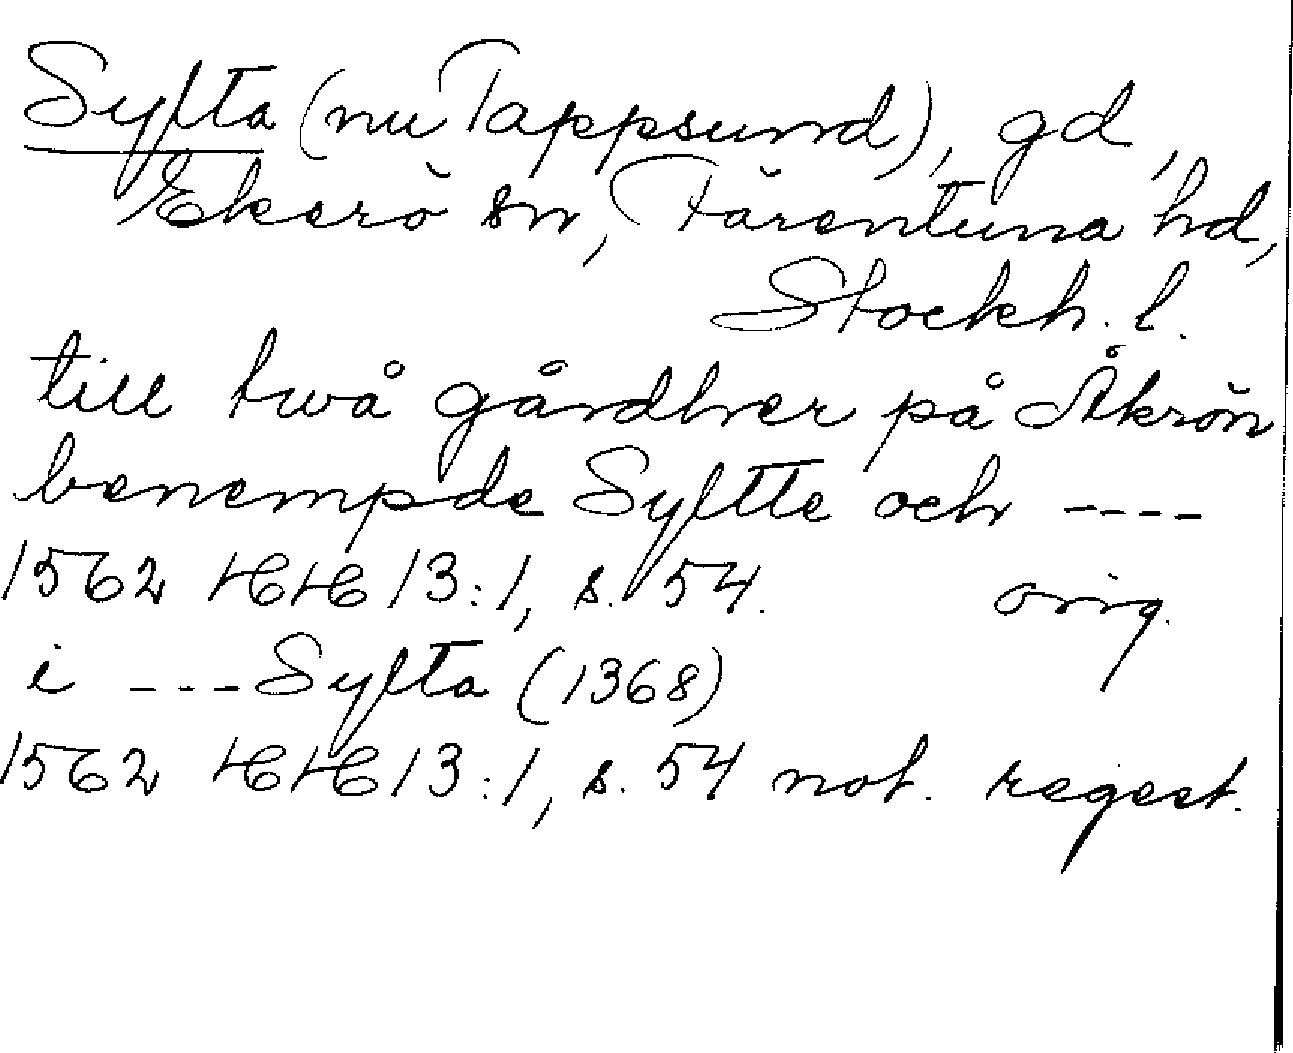 Sylta (nu Tappsund), gd,
Ekerö sn, Färentuna hd,
Stockh. l.
till twå gårdher på Åkrön
benempde Syltte och ----
1562 HH 13:1, s. 54. orig.
i ---Sylta (1368)
1562 HH 13:1, s. 54 not. regest.